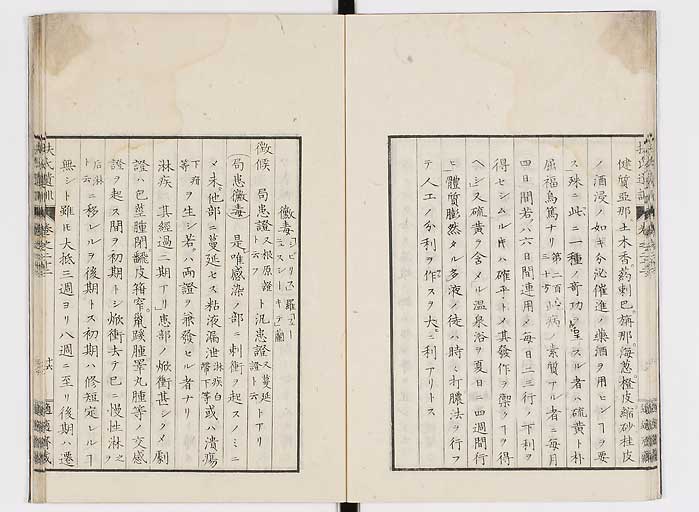 健質亞那土木香。葯剌巴。旃那海葱。橙皮縮砂桂皮
ノ酒浸ノ如キ分泌催進ノ藥酒ヲ用ヒシヿヲ要
ス殊ニ此ニ一種ノ奇功ヲ呈スル者ハ硫黄ト朴
屈福烏篤ナリ 第二百三十方 此病ノ素質アル者ニ毎月
四日間若クハ六日間連用メ毎日二三行ノ下利ヲ
得セシムル𪜈ハ確乎トメ其發作ヲ禦クヿヲ得
ヘシ又硫黄ヲ含メル温泉浴ヲ夏日ニ四週間行
ヒ體質膨然タル多液ノ徒ハ時ニ打膿法ヲ行フ
テ人工ノ分利ヲ作スヲ大ニ利アリトス
扶氏遺訓 卷之二十二
黴毒
徴候 局患證 又根原證ト云フ 汎患證 又蔓延證ト云 トアリ
(局患黴毒) 是唯感染ノ部ニ刺衝ヲ起スノミニ
メ未他部ニ蔓延セス粘液漏泄 淋疾白帶下等 或ハ潰瘍
下疳等 ヲ生シ若クハ兩證ヲ兼發セル者ナリ
淋疾 其經過二期アリ患部ノ焮衝甚シクメ劇
證ハ包莖腫閉。龜皮箝窄。鼠蹊腫。睾丸腫等ノ交感
證ヲ起ス間ヲ初期トシ焮衝去テ已ニ慢性淋 之
后淋ト云 ニ移レルヲ後期トス初期ハ修短定レルヿ
無シト雖𪜈大抵三週ヨリ八週ニ至リ後期ハ遷
扶氏遺訓 卷之二十二 十六 適適齋藏